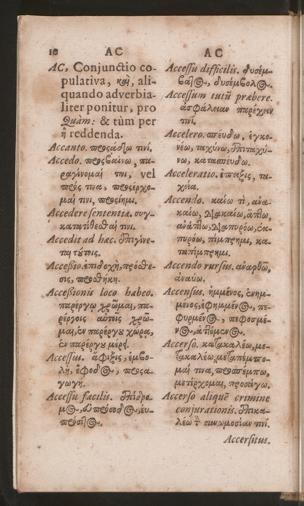 10 AC AC
AC, Conjunctio co-
pulativa, καὶ, ali-
quando adverbia-
liter ponitur, pro
Quàm: & tùm per
ἢ reddenda.
Accanto. προσᾴδω τινί.
Accedo. προσβαίνω, πα-
ραγίνομαί τινι, vel
πρός τινα, προσέρχο-
μαί τινι, πρόσειμι.
Accedere sententiæ. συγ-
κατατίθεσθαί τινι.
Accedit ad hæc. ἐπιγίνε-
ται τούτοις.
Accessio. ἐπιδοχὴ, πρόσθε-
σις, προσθήκη.
Accessionis loco habeo.
παρέργῳ χρῶμαι, πα-
ρέργοις αὐτοῖς χρῶ-
μαι, ἐν παρέργου χώρᾳ,
ἐν παρέργου μέρει.
Accessus. ἄφιξις, ἐμβο-
λὴ, ἔφοδος, προσα-
γωγή.
Accessu facilis. ἐπίδρο-
μος, εὐπρόσοδος, εὐ-
πρόσιτος.
Accessu difficilis. δυσέμ-
βατος, δυσέμβολος.
Accessum tuti præbere.
ἀσφάλειαν παρέχειν
τινί.
Accelero. σπεύδω, ἐγκο-
νέω, ταχύνω, ἐπιταχύ-
νω, κατασπεύδω.
Acceleratio. ἔπειξις, τα-
χεῖα.
Accendo. καίω τι, ἀνα-
καίω, διακαίω, ἅπτω,
ἀνάπτω, διαπυρόω, ἐκ-
πυρόω, πίμπρημι, κα-
ταπίμπρημι.
Accendo rursus. ἀνάπτω,
ἀνακαίω.
Accensus. ἡμμένος, ἐνημ-
μένος, ἐφημμένος, πε-
φυρμένος, πεφοσμέ-
νος, αἰθόμενος.
Accerso. καλέω, με-
τακαλέω, μεταπέμπο-
μαί τινα, προσπέμπω,
μετέρχομαι, προσάγω.
Accerso aliquē crimine
conjurationis. ἐπικα-
λέω συνωμοσίαν τινί.
Accersitus.